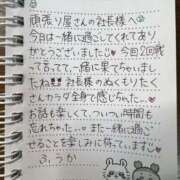 頑張り屋さんの社長様へ♡
今日は一緒に過ごしてくれてあり
がとうございました♡今回2回戦
って言ってて、一緒に果てちゃいまし
たね 社長様のぬくもりたく
さんカラダ全身で感じちゃった…♡
お話も楽しくて、ついつい時間も
忘れちゃった…♡また一緒に過ご
せることを楽しみに待ってます♡
ふうか